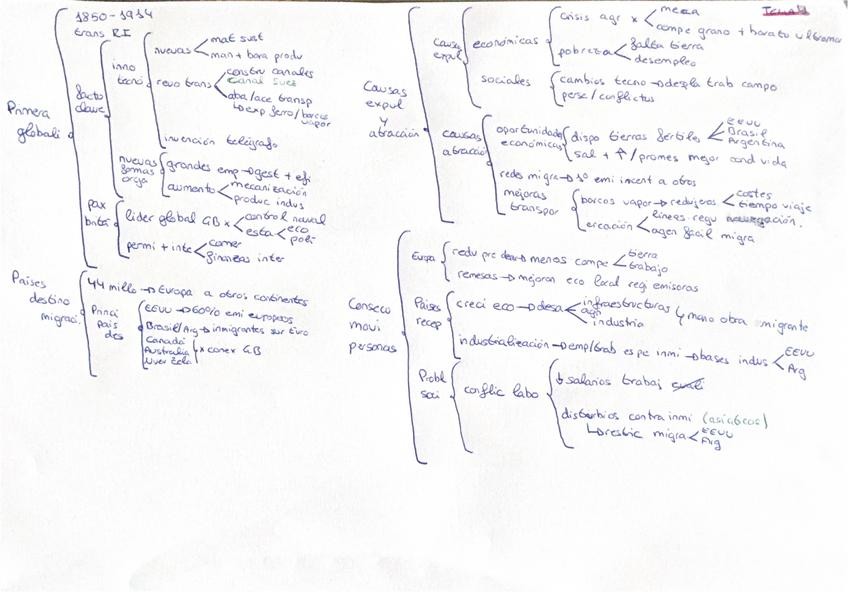 1850-1914
trans RI
Primera globali
facto clave
inno tecno
nuevas
mat sust
man + bara produ
revo trans
constru canales
canal suez
aba/ace transp
↳ exp ferro/barcos vapor
invención telégrafo
nuevas formas orga
grandes emp → gest + efi
aumento
mecanización
produc indus
pax britá
lider global GB x
control naval
esta
eco
poli
permi + inte
comer
finanzas inter
Países destino migraci.
44 millo → Europa a otros continentes
Princi país des
EEUU → 60% emi europeos
Brasil/Arg → inmigrantes sur Euro
Canadá
Australia
Nver Zela
x conex GB
Causas expul y atracción
Causa expul
económicas
crisis agr x
meca
compe grano + barato ultramar
pobreza
falta tierra
desempleo
sociales
cambios tecno → despla trab campo
perse/conflictos
causas atracció
oportunidade económicas
dispo tierras fértiles
EEUU
Brasil
Argentina
sal + ↑/promes mejor cond vida
redes migra → 1º emi incent a otros
mejoras transpor
barcos vapor → redujeron
costes
tiempo viaje
creación
líneas regu navegación.
agen facil migra
Conseco movi personas
Europa
redu pre demo → menos compe
tierra
trabajo
remesas → mejoran eco local regi emisoras
Países recep
creci eco → desa
infraestructuras
agri
industria
y mano obra migrante
industrialización → emp/trab espe inmi → bases indus
EEUU
Arg
Probl soci
conflic labo
↓ salarios trabaj
disturbios contra inmi (asiáticos)
↳ restric migra
EEUU
Arg